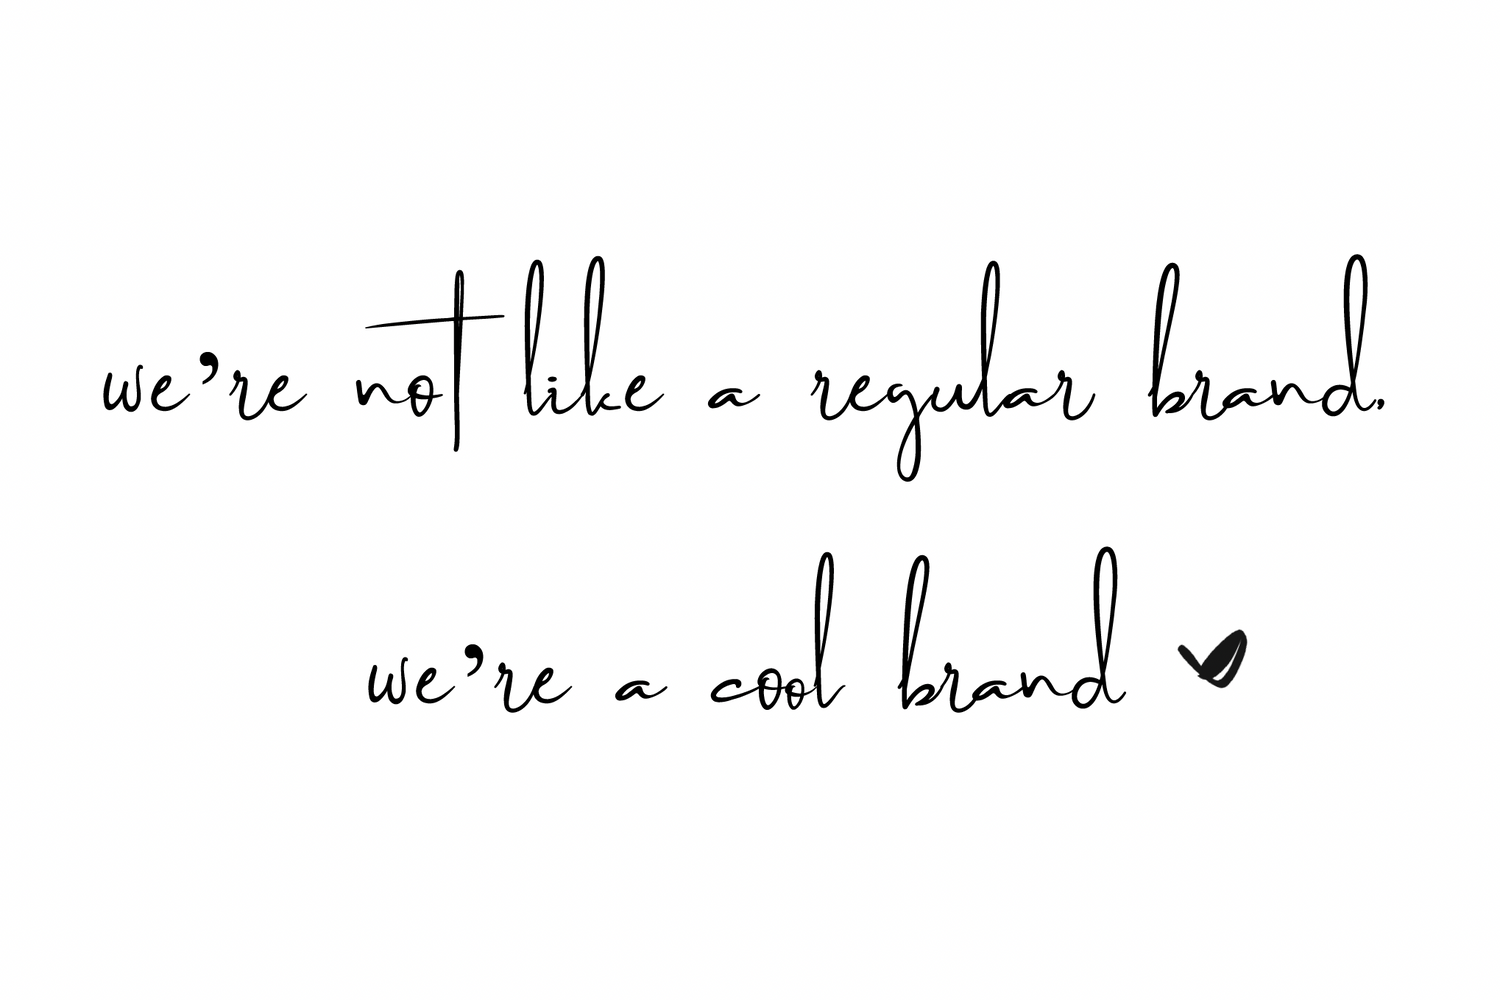 we’re not like a regular brand,
we’re a cool brand